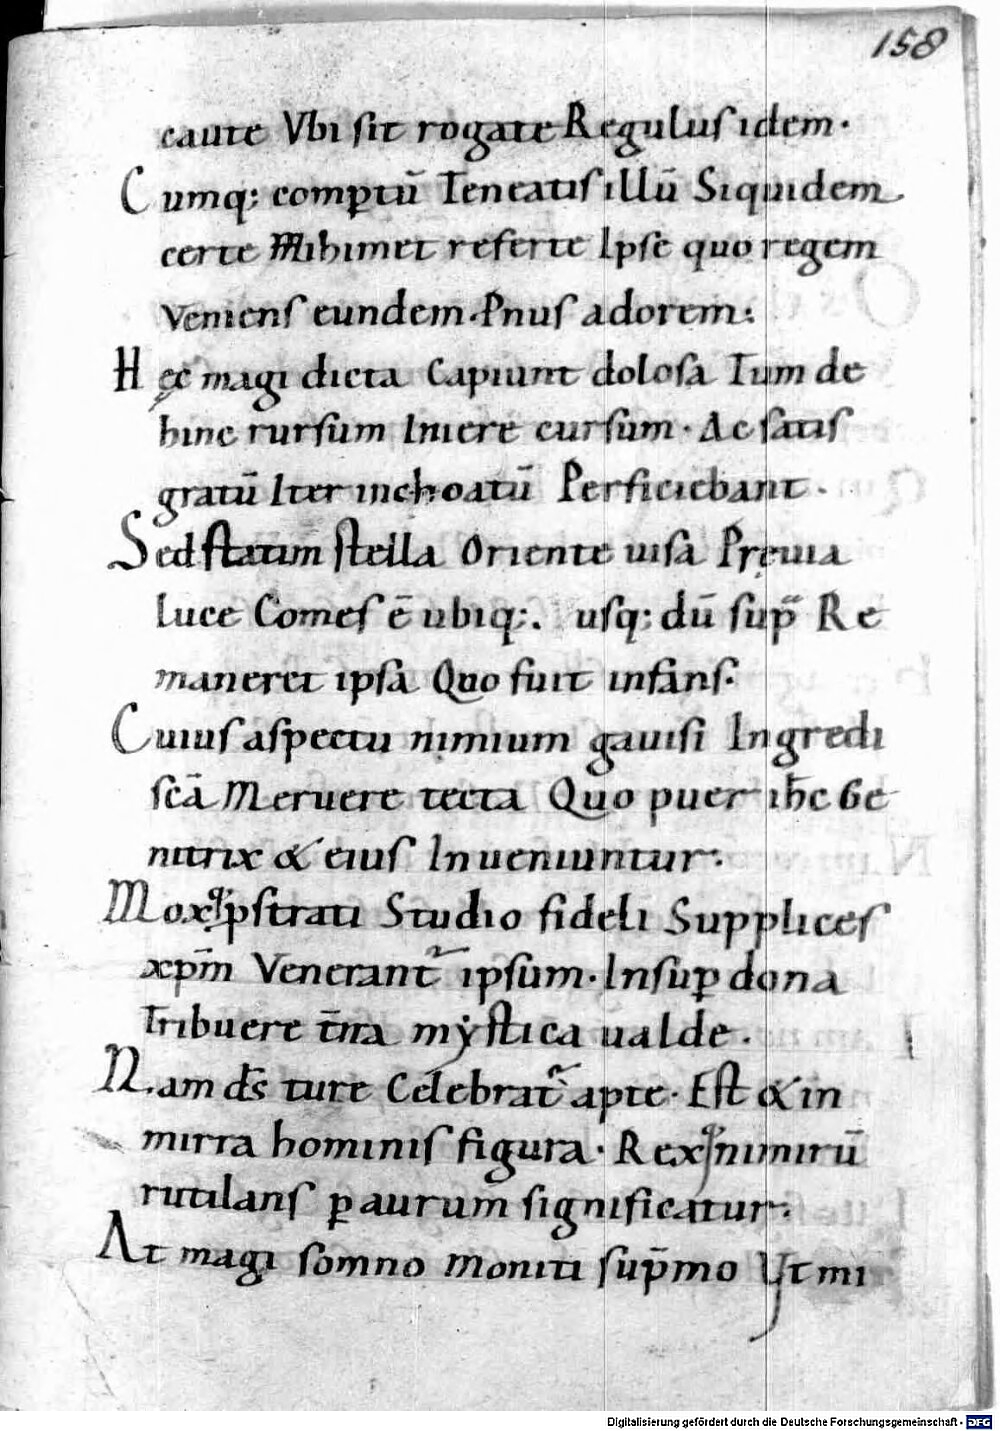 158
caute Vbi sit rogate Regulus idem.
Cumq; comptū Teneatis illū Siquidem
certe Mihimet referte Ipse quo regem
Veniens eundem. Pnus adorem:
Hęc magi dicta Capiunt dolosa Tum de
hinc rursum Iniere cursum. Ac satis
gratū Iter inchoatū Perficiebant.
Sed statim stella Oriente uisa Pręuia
luce Comes ē ubiq;. usq; dū sup Re
maneret ipsa Quo fuit infans.
Cuius aspectu nimium gauisi Ingredi
scā Meruere tecta Quo puer ihc Ge
nitrix & eius Inueniuntur.
Moxq; pstrati Studio fideli Supplices
xpm̄ Venerant ipsum. Insup dona
Tribuere t̄na mystica ualde.
Nam ds̄ ture Celebrat apte. Est & in
mirra hominis figura. Rexq; nimirū
rutilans p aurum significatur.
At magi somno moniti sup̄mo Vt mi
Digitalisierung gefördert durch die Deutsche Forschungsgemeinschaft - DFG